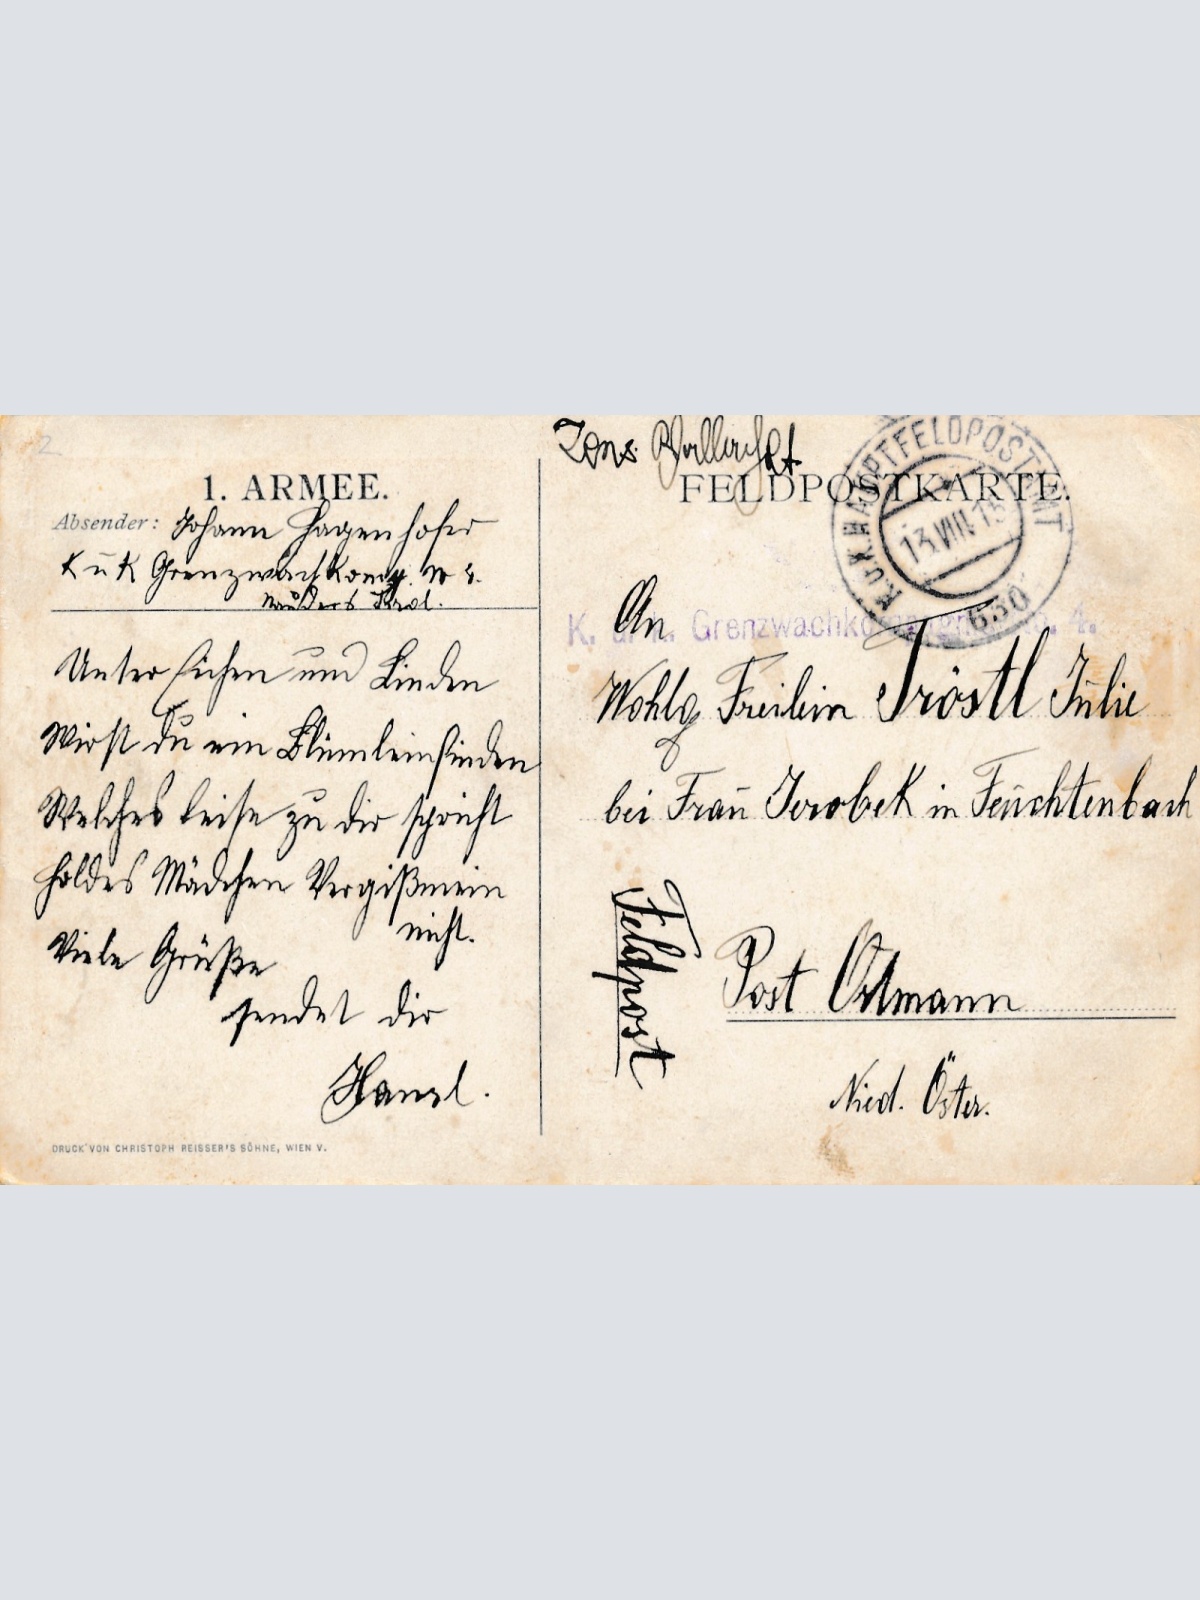 1. ARMEE.
Absender: Johann Hagenhofer
K u K Grenzwachkomp. No 4.
Nauders Tirol.
Unter Eichen und Linden
Wirst du ein Blümlein finden
Welches leise zu dir spricht
Holdes Mädchen Vergißmein
nicht.
Viele Grüße
sendet dir
Hansl.
DRUCK VON CHRISTOPH REISSER'S SÖHNE, WIEN V.
FELDPOSTKARTE.
K.U.K. HAUPTFELDPOSTAMT
13.VIII.15
630
K. u. k. Grenzwachkompagnie No. 4.
An
Wohlg Freilein Tröstl Julie
bei Frau Jerobek in Feuchtenbach
Feldpost
Post Ortmann
Nied. Öster.